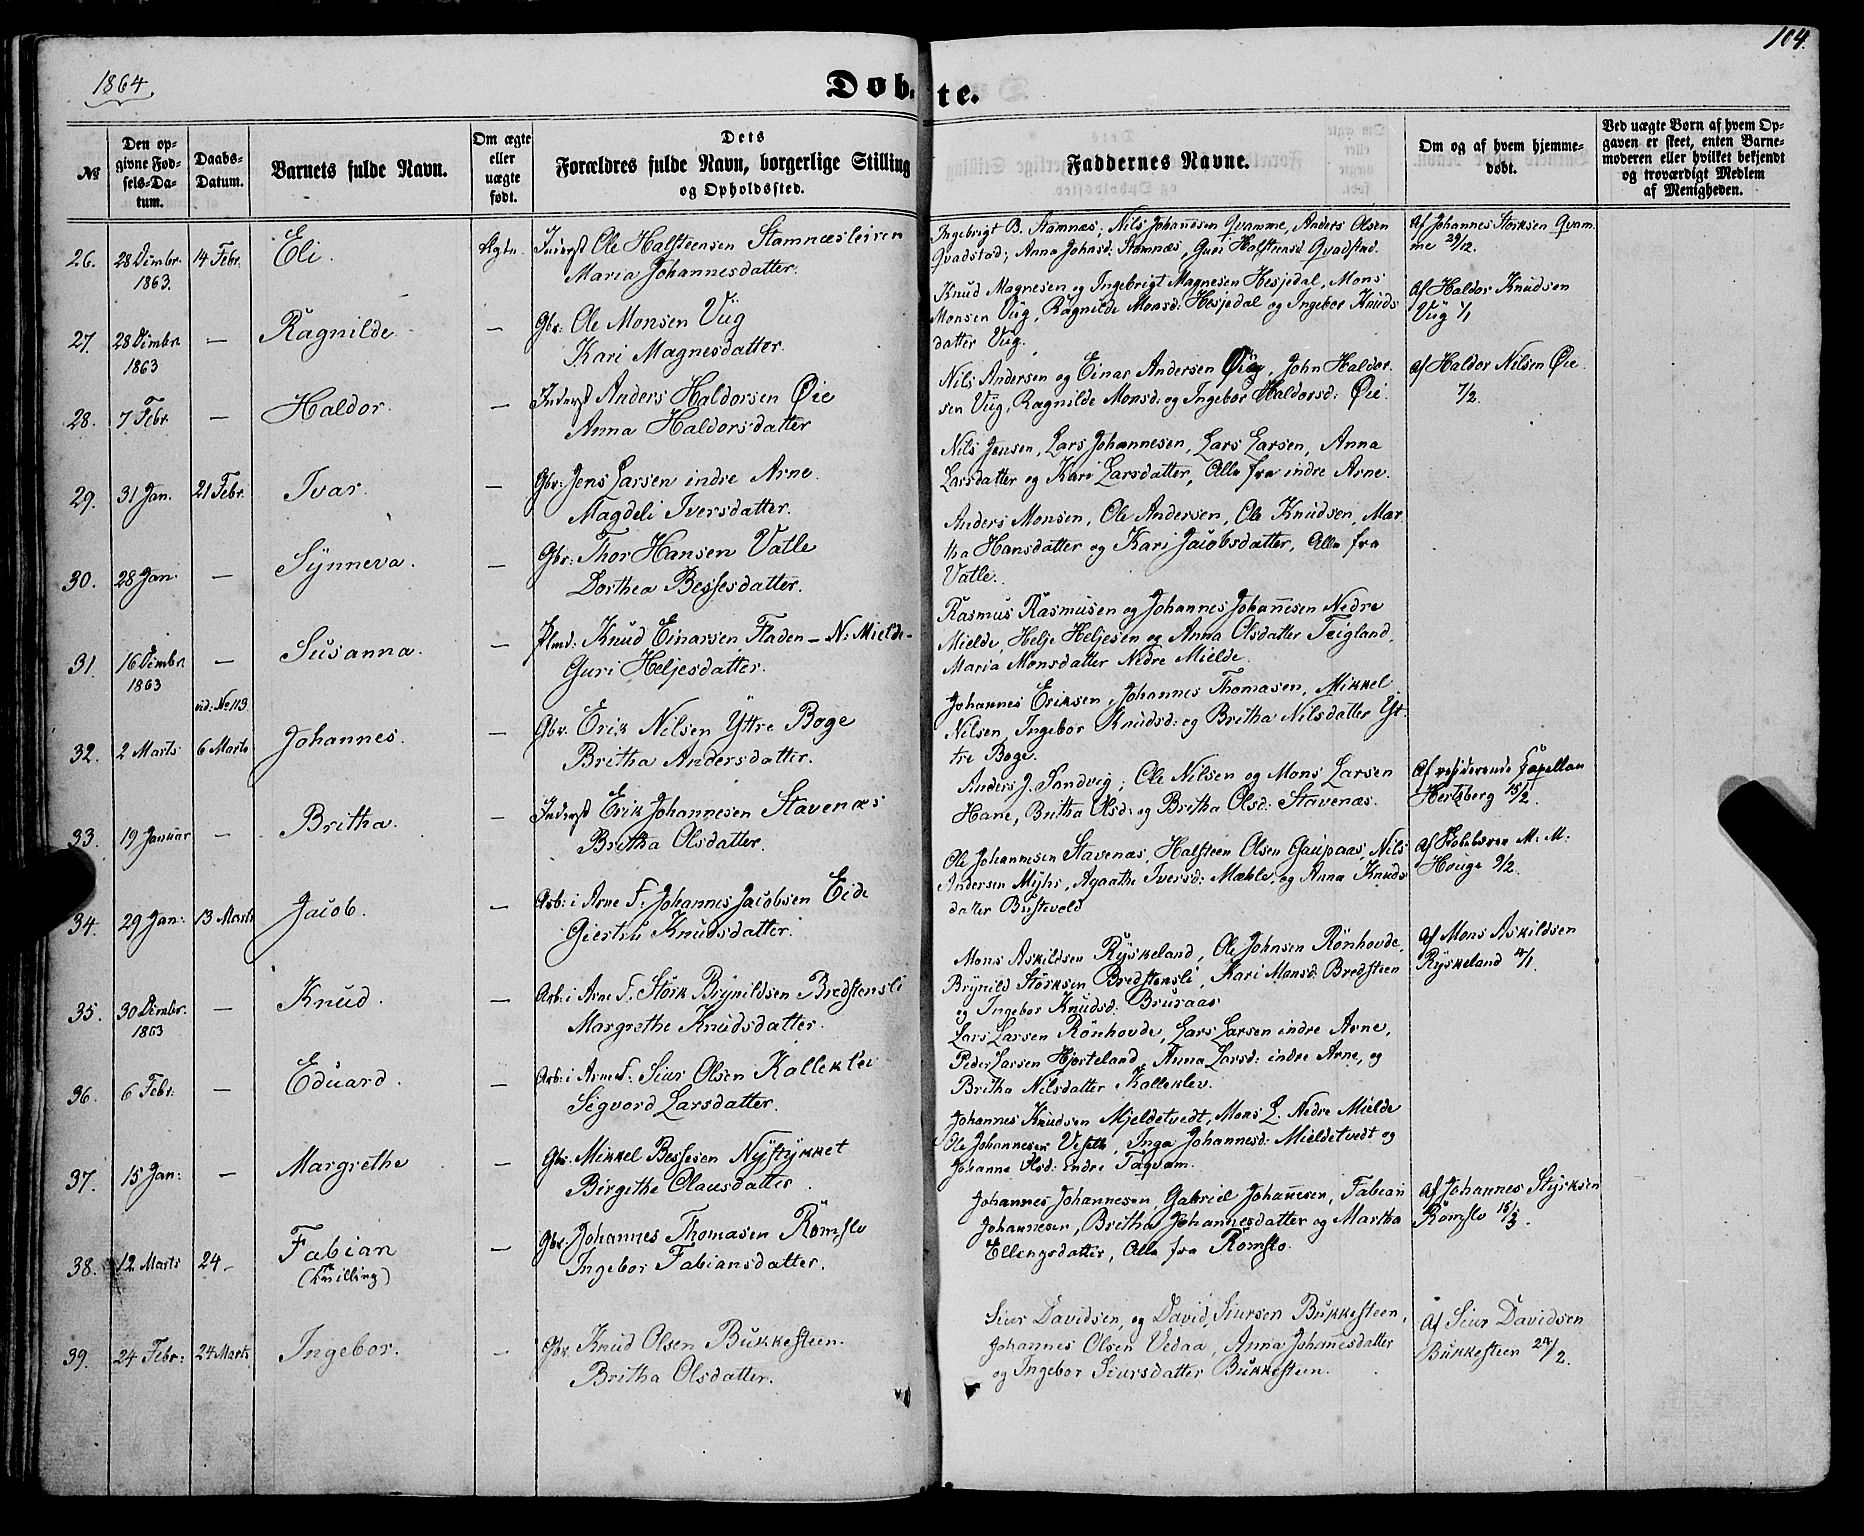 104.
1864.
Døbte.
№
Den opgivne Fødsels-Datum.
Daabs-Datum.
Barnets fulde Navn.
Om ægte eller uægte født.
Dets Forældres fulde Navn, borgerlige Stilling og Opholdssted.
Faddernes Navne.
Om og af hvem hjemmedøbt.
Ved uægte Børn af hvem Opgaven er skeet, enten Barnemoderen eller hvilket bekjendt og troværdigt Medlem af Menigheden.
26. 28 Dcmbr. 1863. 14 Febr. Eli. Ægte. Inderst Ole Halsteensen Stamnæsleiren
Maria Johannesdatter.
Ingebrigt B. Stamnæs, Nils Johannesen Qvamme, Anders Olsen
Qvadstad, Anna Johnsd: Stamnæs, Guri Halsteensd Qvadstad.
Af Johannes Storksen Qvam
me 29/12.
27. 28 Dcmbr. 1863 — Ragnilde. — Gbr: Ole Monsen Viig
Kari Magnesdatter.
Knud Magnesen og Ingebrigt Magnesen Hesjedal, Mons
Monsen Viig, Ragnilde Monsd: Hesjedal og Ingebor Knuds
datter Viig.
Af Haldor Knudsen
Viig 1/1
28. 7 Febr. — Haldor. — Inderst Anders Haldorsen Øie
Anna Haldorsdatter
Nils Andersen og Einar Andersen Øie, John Haldor.
sen Viig, Ragnilde Monsd: og Ingebor Haldorsd: Øie.
Af Haldor Nilsen Øie.
7/2.
29. 31 Jan. 21 Febr. Ivar. — Gbr: Jens Larsen indre Arne.
Magdeli Iversdatter.
Nils Jensen, Lars Johannesen, Lars Larsen, Anna
Larsdatter og Kari Larsdatter, Alle fra indre Arne.
30. 28 Jan. — Synneva. — Gbr: Thor Hansen Vatle
Dorthea Bessesdatter.
Anders Monsen, Ole Andersen, Ole Knudsen, Mar
tha Hansdatter og Kari Jacobsdatter, Alle fra
Vatle.
31. 16 Dcmbr. 1863 — Susanna. — Plmd: Knud Einarsen Fladen – N: Mielde –
Guri Heljesdatter.
Rasmus Rasmusen og Johannes Johannesen Nedre
Mielde, Helje Heljesen og Anna Olsdatter Teigland,
Maria Monsdatter Nedre Mielde.
vid: No 113.
32. 2 Marts 6 Marts Johannes. — Gbr. Erik Nilsen Yttre Boge
Britha Andersdatter.
Johannes Eriksen, Johannes Thomasen, Mikkel
Nilsen, Ingebor Knudsd: og Britha Nilsdatter Yt:
tre Boge.
33. 19 Januar — Britha. — Inderst Erik Johannesen Stavenæs
Britha Olsdatter.
Anders J. Sandvig, Ole Nilsen og Mons Larsen
Hane, Britha Olsd: og Britha Olsd: Stavenæs.
Af residerende Capellan
Hertzberg 15/2.
34. 29 Jan: 13 Marts Jacob. — Arb: i Arne F. Johannes Jacobsen Eide
Giertru Knudsdatter.
Ole Johannesen Stavenæs, Halsteen Olsen Gaupaas, Nils
Andersen Myhr, Agaathe Iversd: Mæhle, og Anna Knuds
datter Busteveld
Houge 9/2.
35. 30 Dcmbr. 1863 — Knud. — Arb: i Arne F. Stork Brynildsen Bredstensli
Margrethe Knudsdatter.
Mons Askildsen Ryskeland, Ole Johnsen Rönhovde,
Brynild Storksen Bredstensli, Kari Monsd: Bredsteen
og Ingebor Knudsd: Bruraas
Af Mons Askildsen
Ryskeland 4/1.
36. 6 Febr. — Eduard. — Arb: i Arne F. Siur Olsen Kalleklei
Sigvord Larsdatter.
Lars Larsen Rönhovde, Lars Larsen indre Arne,
Peder Larsen Hjorteland, Anna Larsd: indre Arne, og
Britha Nilsdatter Kalleklev.
37. 15 Jan: — Margrethe — Gbr. Mikkel Bessesen Nystykket
Birgithe Clausdatter.
Johannes Knudsen Mjeldetvedt, Mons L. Nedre Mielde
Ole Johannesen Veseth, Inga Johannesd: Mieldetvedt og
Johanne Olsd: indre Taqvam.
38. 12 Marts 24 – Fabian
(Tvilling) — Gbr. Johannes Thomasen Romslo
Ingebor Fabiansdatter.
Johannes Johannesen, Gabriel Johannesen, Fabian
Johannesen, Britha Johannesdatter og Martha
Ellengsdatter, Alle fra Romslo.
Af Johannes Styrksen
Romslo 15/3.
39. 24 Febr: 24 Marts Ingebor. — Gbr. Knud Olsen Bukkesteen.
Britha Olsdatter.
Siur Davidsen, og David Siursen Bukkesteen,
Johannes Olsen Vedaa, Anna Johannesdatter
og Ingebor Siursdatter Bukkesteen.
Af Siur Davidsen
Bukkesteen 27/2.